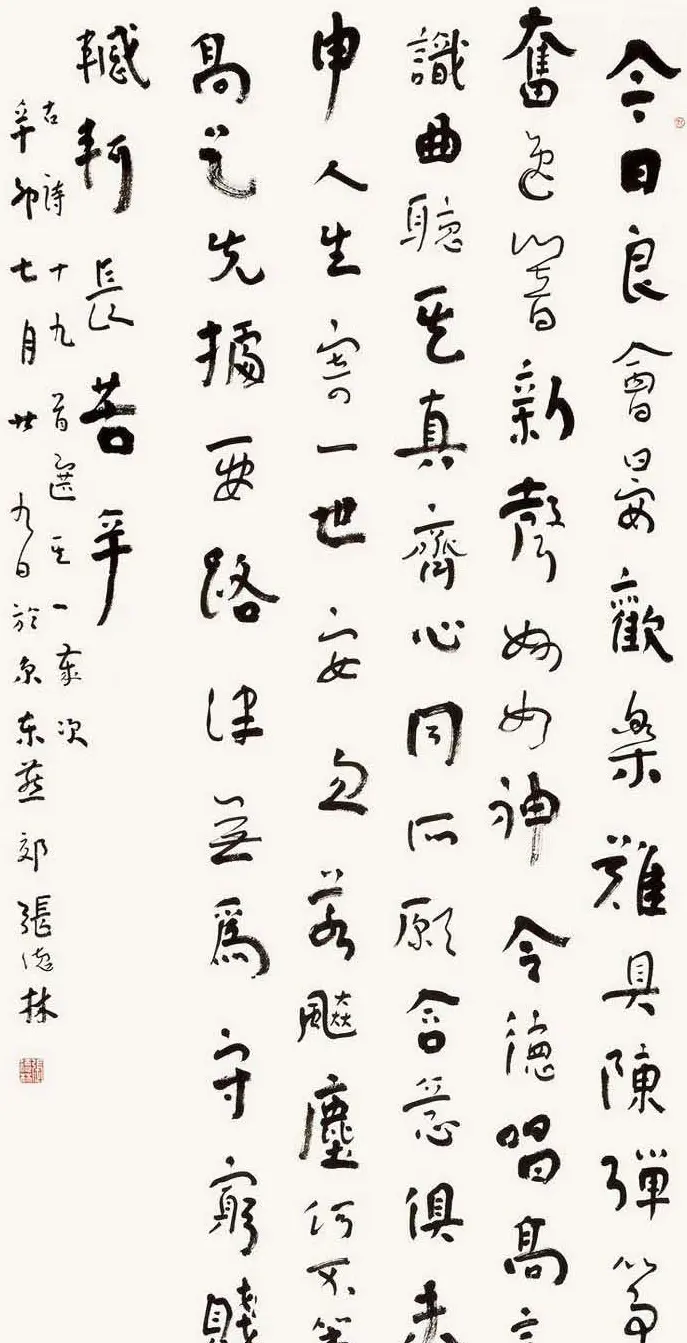 今日良會晏歡樂難具陳彈箏
奮逸響新聲妙如神令德唱高言
識曲聽其真齊心同所願含意俱未
申人生寄一世安忽若飆塵何不策
高足先據要路津無爲守窮賤
轗軻長苦辛
古詩十九首選其一歲次
辛卯七月廿九日於京东燕郊張德林